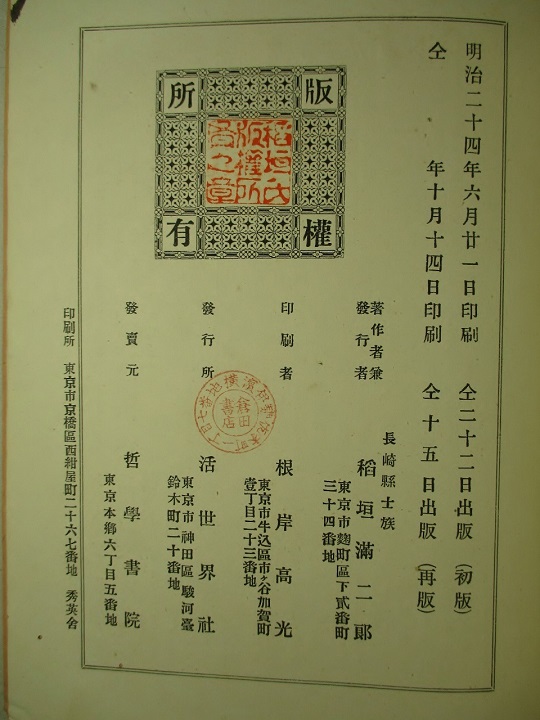 明治二十四年六月廿一日印刷 仝二十二日出版 (初版)
仝 年十月十四日印刷 仝十五日出版 (再版)
版權所有
稻垣氏版權所有之章
著作者兼發行者
長崎縣士族
稻垣滿二郎
東京市麹町區下貳番町三十四番地
印刷者
根岸高光
東京市牛込區市ヶ谷加賀町壹丁目二十三番地
發行所
活世界社
東京市神田區駿河臺鈴木町二十番地
發賣元
哲學書院
東京本鄕六丁目五番地
印刷所 東京市京橋區西紺屋町二十六七番地 秀英舍
書店